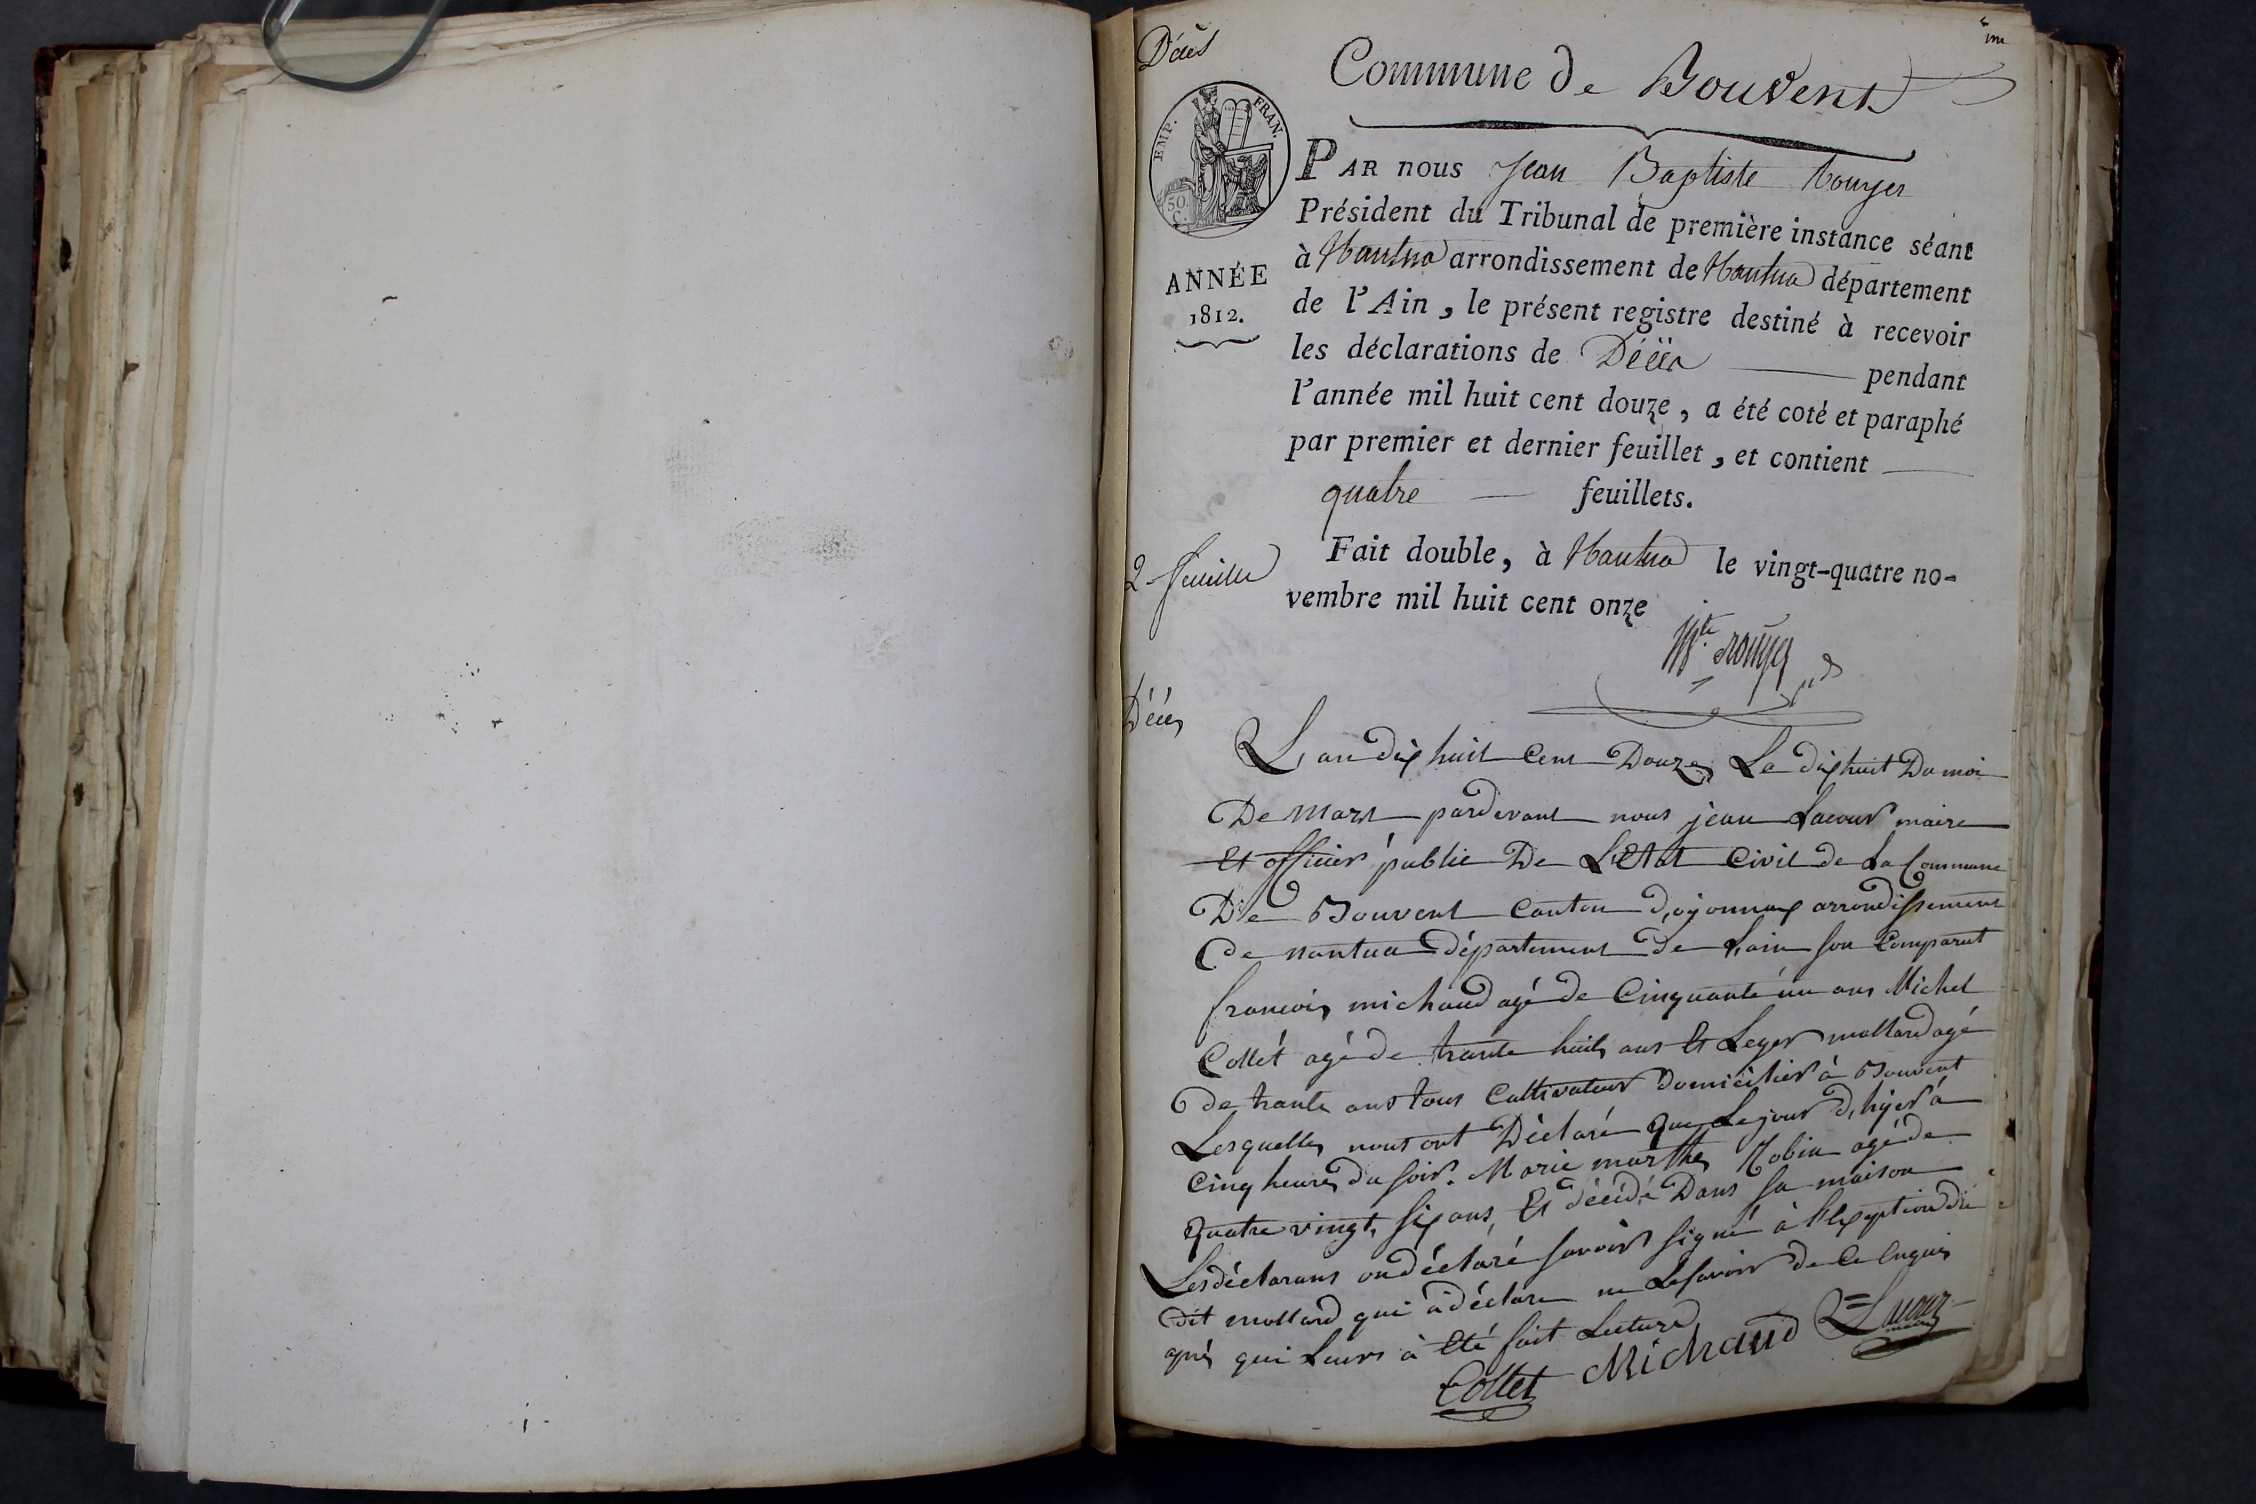 Décès
Commune de Bouvent
EMP. FRAN.
50. C.
ANNÉE
1812.
PAR nous Jean Baptiste Rouyer
Président du Tribunal de première instance séant
à Nantua arrondissement de Nantua département
de l'Ain, le présent registre destiné à recevoir
les déclarations de Décès pendant
l'année mil huit cent douze, a été coté et paraphé
par premier et dernier feuillet, et contient
quatre feuillets.
2 feuillet
Fait double, à Nantua le vingt-quatre no-
vembre mil huit cent onze
rouyer
Décès
L'an dix huit Cent Douze Le dix huit Du moi
De Mars pardevant nous jean Lacour maire
Et officier public De L'Etat Civil de La Commune
De Bouvent Canton d'oyonnax arrondissement
de nantua département De Lain son Comparut
francois michaud agé de Cinquante un ans Michel
Collet agé de trante huit ans Et Leger mollard agé
de trante ans tous Cultivateur domicilier à Bouvent
Lesquelles nous ont Déclaré que Le jour d'hyer à
Cinq heures du soir. Marie marthe Robin agé de
quatre vingt six ans Et décédé Dans sa maison
Les déclarans on déclaré savoir signé à l'Exeption du
dit mollard qui à déclare ne Le savoir de Ce Enquis
aprés qui Leurs à Eté fait Lecture
Collet Michaud Lacour